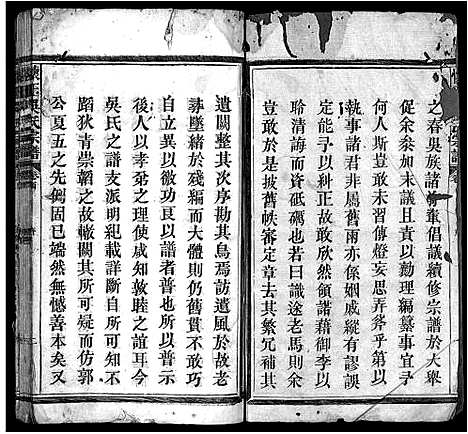 之春吳族諸 輩倡議續修宗譜於大舉
促余叅加末席且責以勷理編纂事宜予
何人斯豈敢未習傳燈妄思弄斧乎第以
執事諸君非屬舊雨亦係姻戚縱有謬誤
定能予以糾正故敢欣然領諾藉御李以
聆清誨而資砥礪也若曰識途老馬則余
豈敢於是披舊帙審定章去其繁冗補其
遺闕整其次序勘其烏焉訪遺風於故老
尋墜緒於殘編而大體則仍舊貫不敢巧
自立異以徼功良以譜者普也所以普示
後人以孝弟之理使咸知敦睦之誼耳今
吳氏之譜支派明紀載詳斷自其所可知不
蹈狄青崇韜之故轍闕其所可疑而仿郭
公夏五之先例固已端然無憾善本矣又
吳氏宗譜